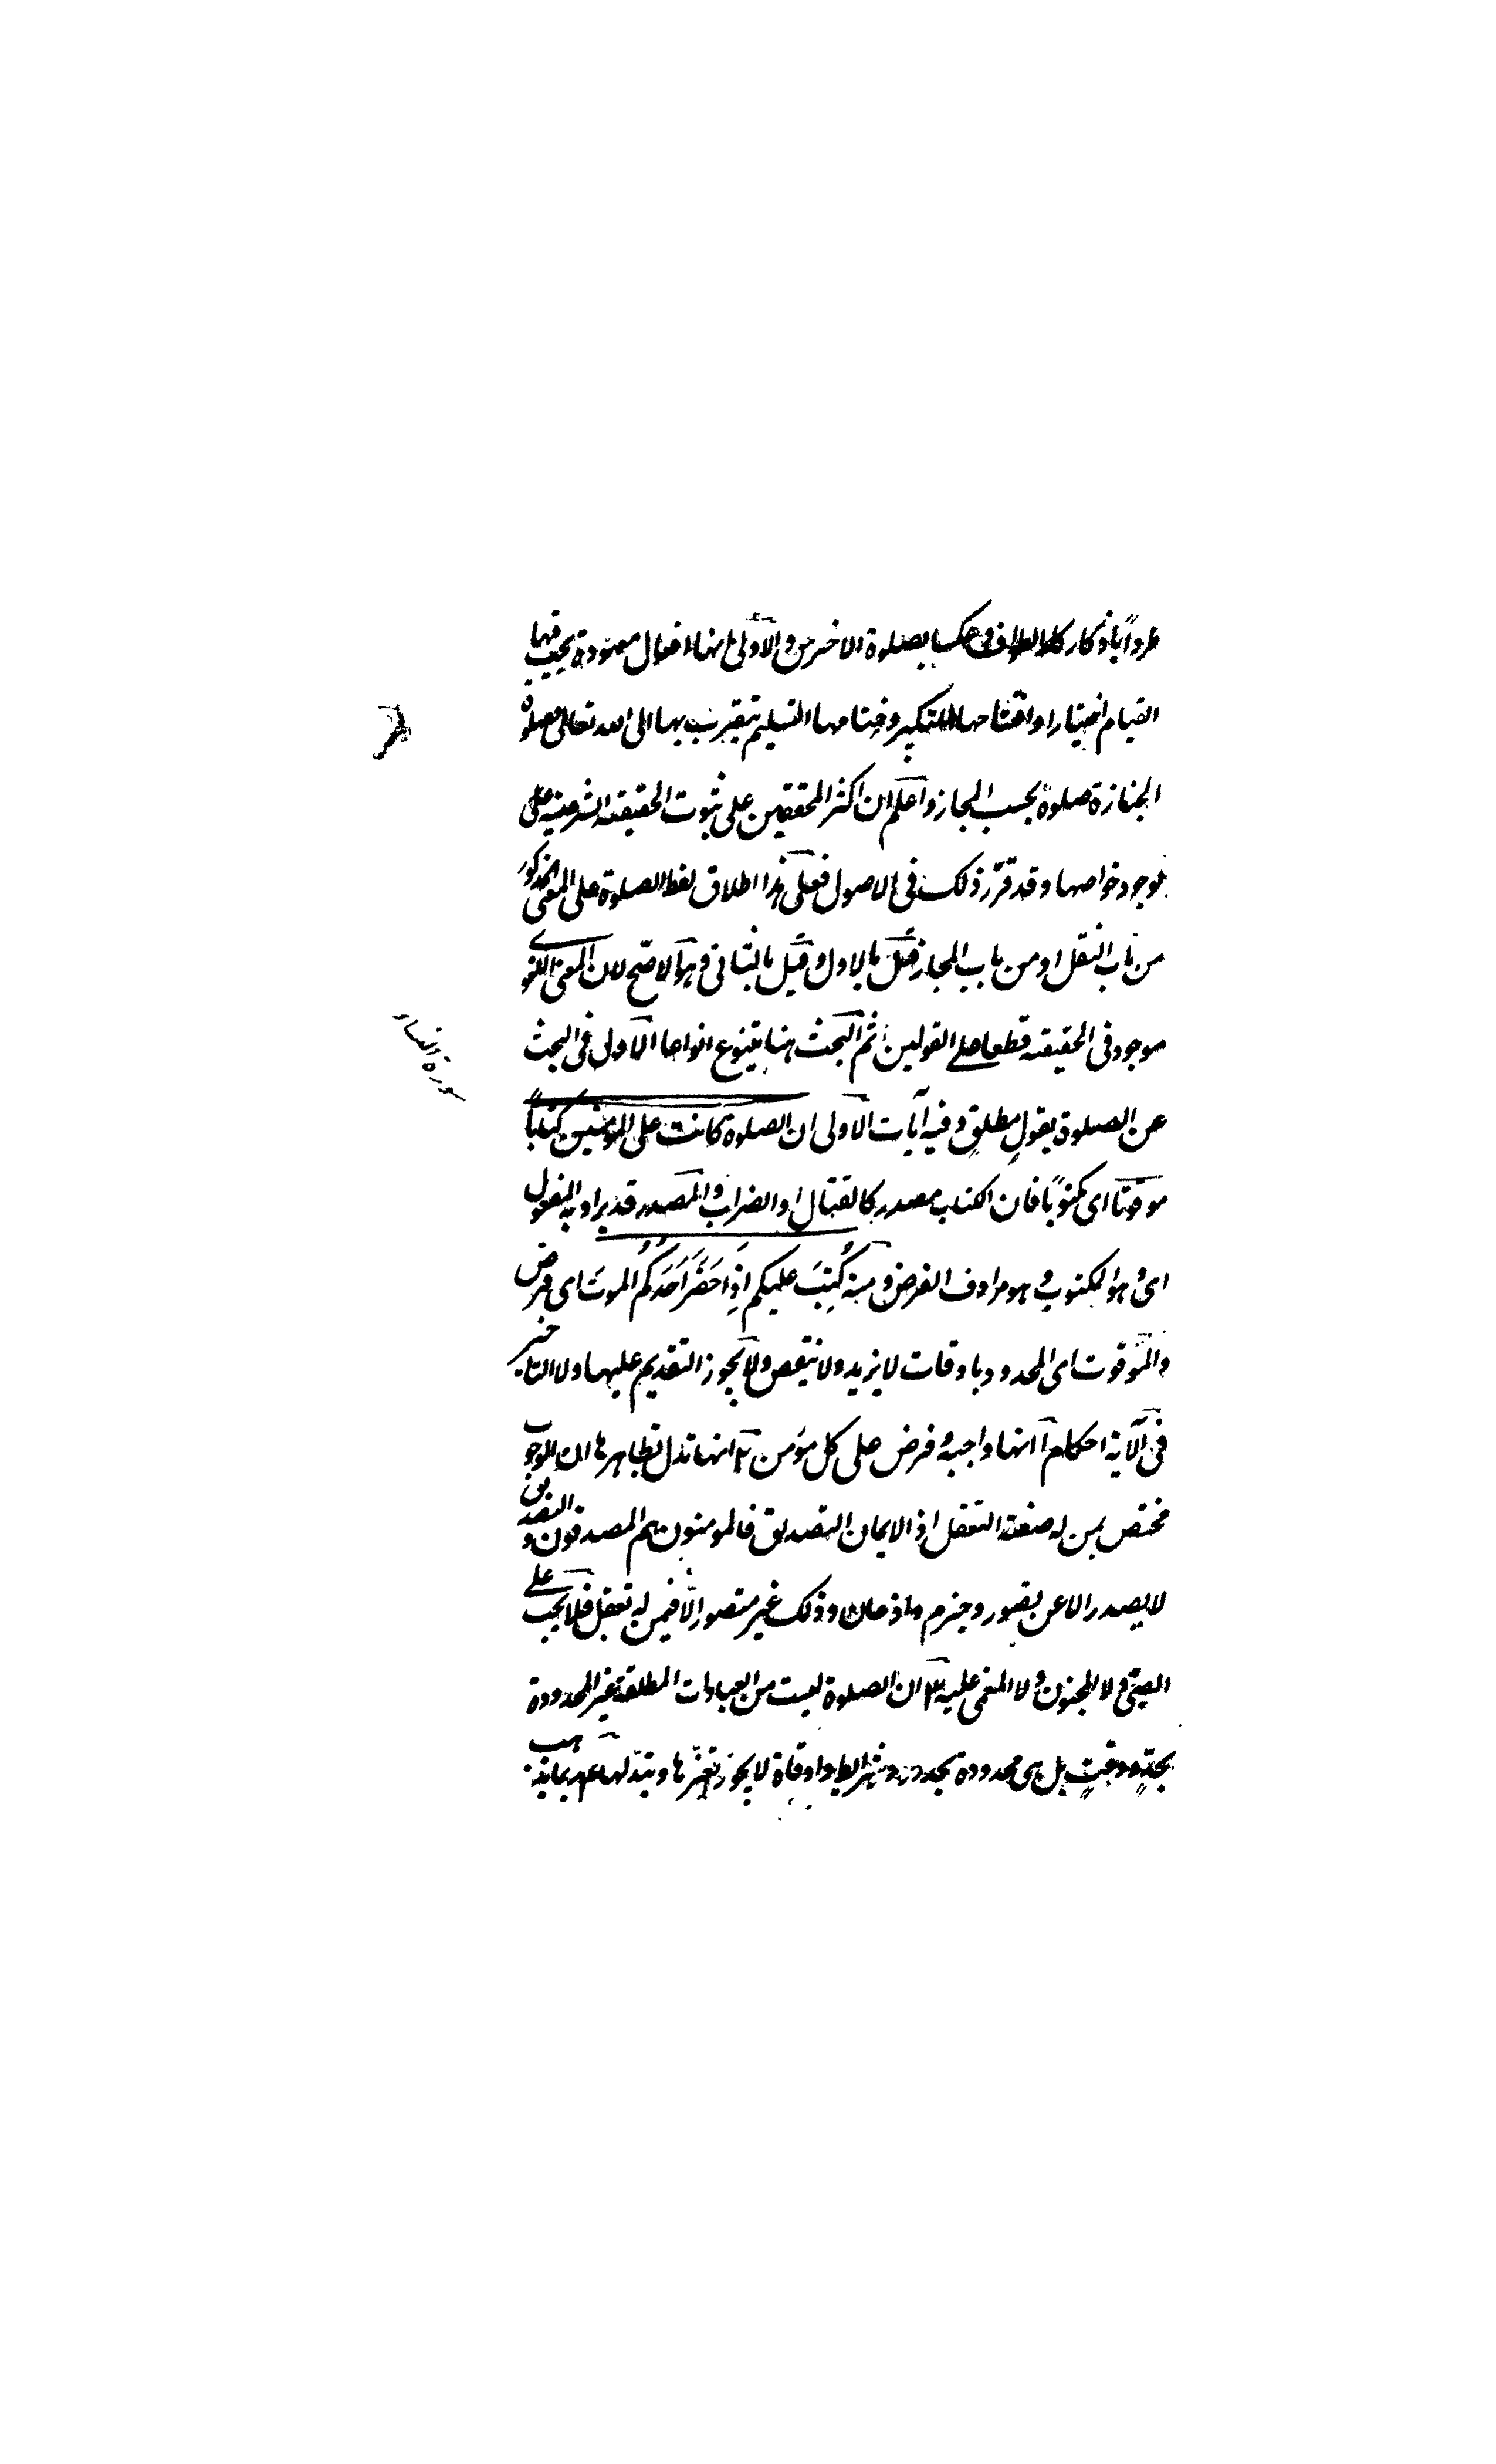 طرداً باذكار الطواف وعكسا بصلوة الاخرس والاولى انها افعال معهودة يجب فيها
القيام اختيارا وافتتاحها التكبير وختامها التسليم يتقرب بها الى الله تعالى فصلوة
الجنازة صلوة بحسب المجاز واعلم ان اكثر المحققين على ثبوت الحقيقة الشرعية على
لوجود خواصها وقد قرّر ذلك فى الاصول فعلى هذا اطلاق لفظ الصلوة على المعنى المذكور
من باب النقل او من باب المجاز قيل بالاول وقيل بالثانى وهو الاصح لان المعنى اللغوى
موجود فى الحقيقة قطعا على القولين ثم البحث هنا يتنوع انواعا الاول فى البحث
عن الصلوة بقولٍ مطلقٍ وفيه آيات الاولى ان الصلوة كانت على المؤمنين كتاباً
موقوتا اى مكتوباً فان الكتاب مصدر كالقتال والضراب والمصدر قد يراد به المفعول
اى هو المكتوب وهو مرادف الفرض ومنه كُتِبَ عليكم اذِا حَضَرَ اَحَدَكُمُ الموتُ اى فرض
والموقوت اى المحدود باوقات لا يزيد ولا ينقص ولا يجوز التقديم عليها ولا التاخير
فى الآية احكام آ انها واجبة وفرض على كل مؤمن ٢ انها تدل بظاهرها ان الوجوب
مختص بمن له صفة التعقل اذ الايمان التصديق فالمومنون هم المصدقون والتصديق
لا يصدر الا عن تصور وجزم واذعان وذلك غير متصور الّا فيمن له تعقل فلا يجب على
الصبىّ ولا المجنون ولا المغمى عليه ٣ ان الصلوة ليست من العبادات المطلقة غير المحدودة
بحدٍّ ووقتٍ بل هى محدودة بحدود وشرائط واوقاة لا يجوز تغيّرها وتبدّلها
سورة النساء